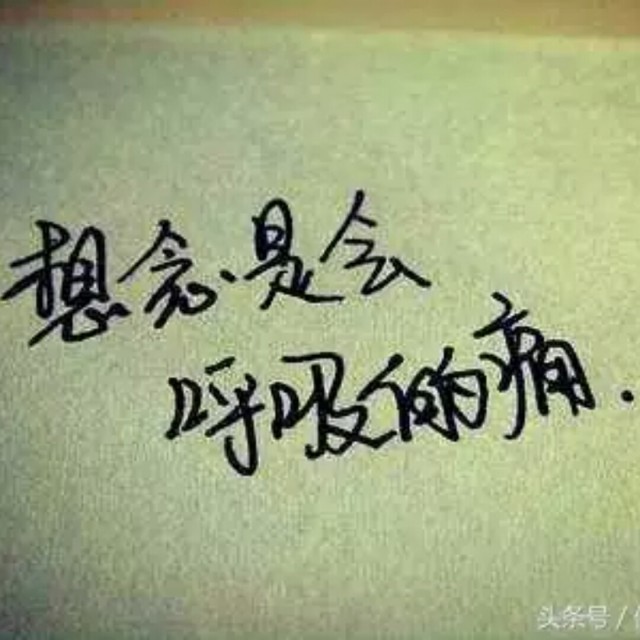 想念是会
呼吸的痛.
头条号 /